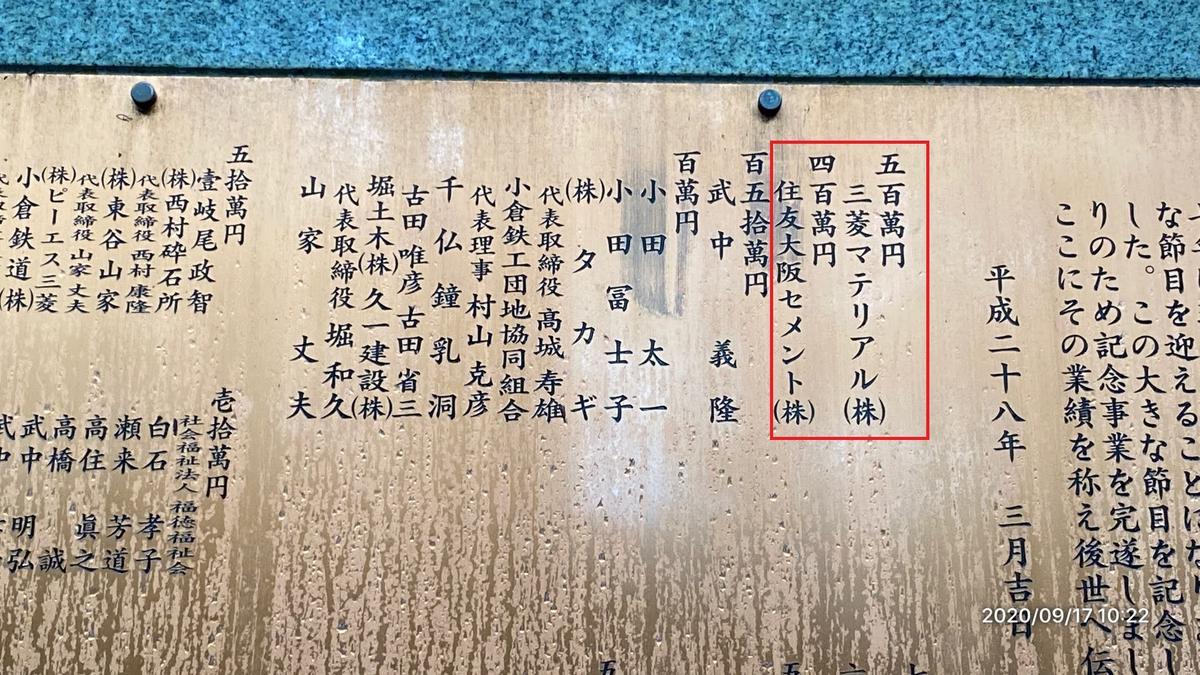 な節目を迎えることにな
した。この大きな節目を記念し
りのため記念事業を完遂しまし
ここにその業績を称え後世へ伝
平成二十八年 三月吉日
五百萬円
三菱マテリアル(株)
四百萬円
住友大阪セメント(株)
百五拾萬円
武中 義隆
百萬円
小田 太一
小田 冨士子
(株)タカギ
代表取締役 髙城寿雄
小倉鉄工団地協同組合
代表理事 村山克彦
千仏鐘乳洞
古田唯彦 古田省三
堀土木(株) 久一建設(株)
代表取締役 堀和久
山家 丈夫
五拾萬円
壹岐尾政智
(株)西村砕石所
代表取締役 西村康隆
(株)東谷山家
代表取締役 山家丈夫
(株)ピーエス三菱
小倉鉄道(株)
壱拾萬円
社会福祉法人 福徳福祉会
白石 孝子
瀬来 芳道
高住 眞之
高橋 誠
武中 明弘
2020/09/17 10:22